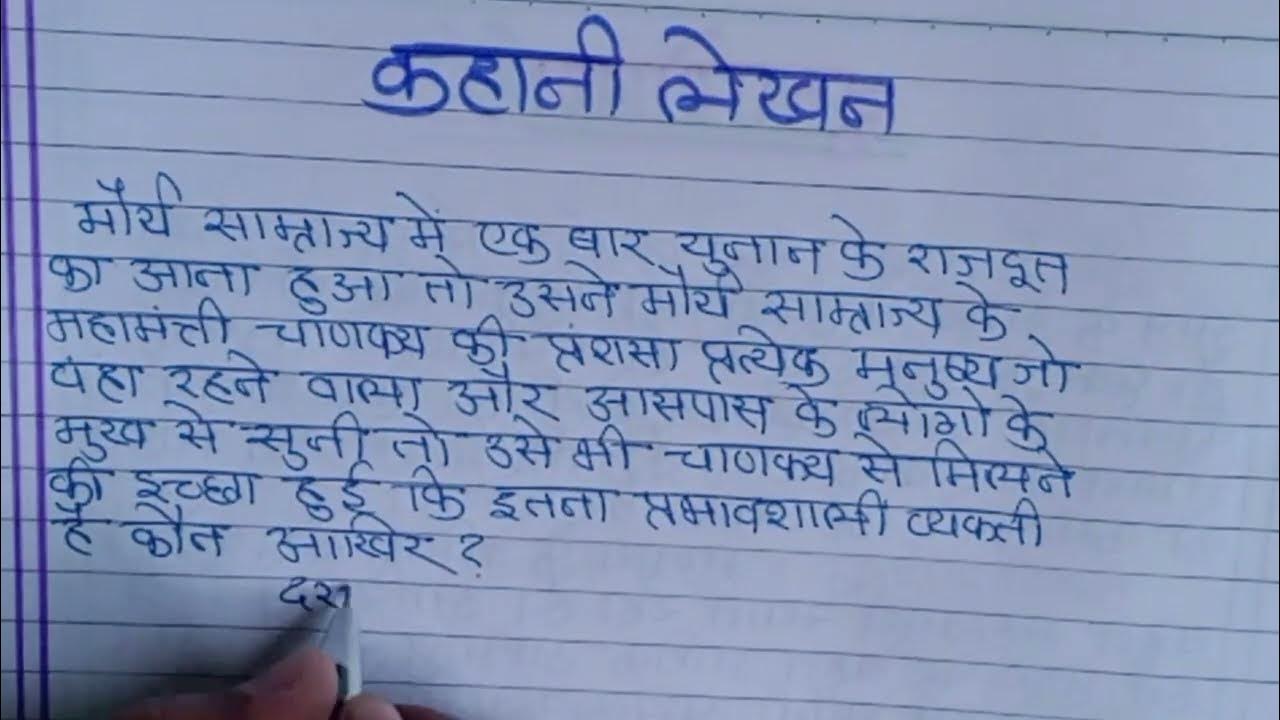 कहानी लेखन
मौर्य साम्राज्य में एक बार युनान के राजदूत
का आना हुआ तो उसने मौर्य साम्राज्य के
महामंत्ती चाणक्य की प्रंशसा प्रत्येक मनुष्य जो
वहा रहने वाला और आसपास के लोगो के
मुख से सुनी तो उसे भी चाणक्य से मिलने
की इच्छा हुई कि इतना प्रभावशाली व्यकती
है कौन आखिर ?